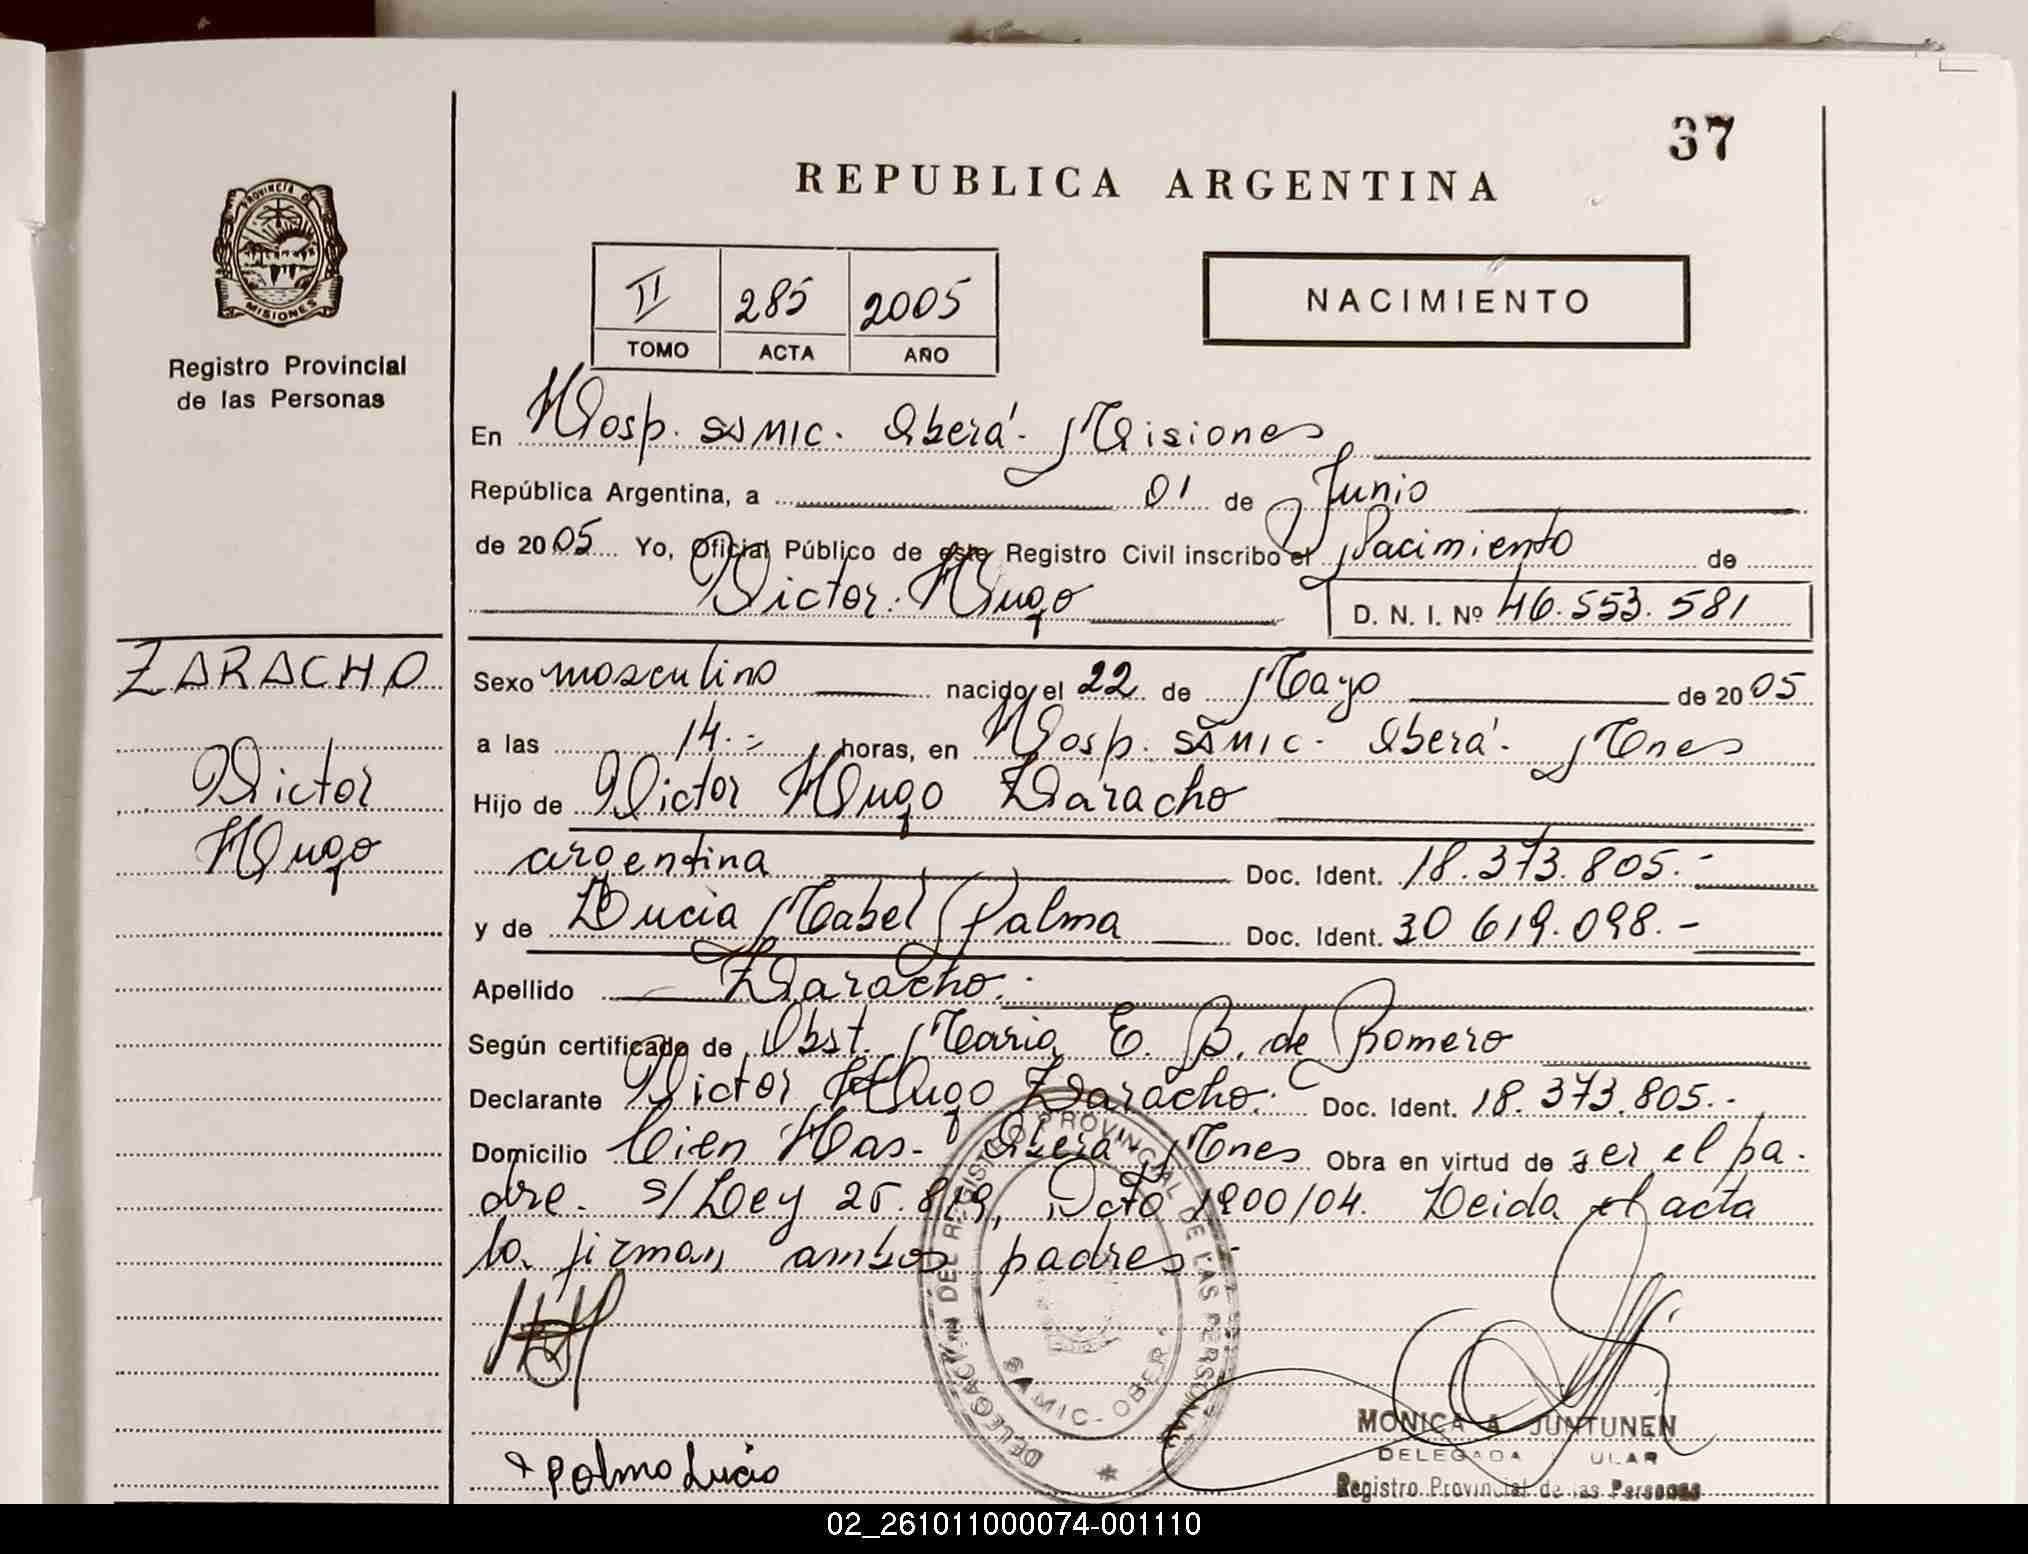 37
REPUBLICA ARGENTINA
PROVINCIA D
MISIONES
Registro Provincial
de las Personas
II 285 2005
TOMO ACTA AÑO
NACIMIENTO
En Hosp. SAMIC. Oberá. Misiones
República Argentina, a 01 de Junio
de 2005 Yo, Oficial Público de este Registro Civil inscribo el Nacimiento de
Victor Hugo D. N. I. Nº 46.553.581
ZARACHO
Victor
Hugo
Sexo masculino nacido el 22 de Mayo de 2005
a las 14.- horas, en Hosp. SAMIC. Oberá. Mnes
Hijo de Victor Hugo Zaracho
argentina Doc. Ident. 18.373.805.-
y de Lucia Mabel Palma Doc. Ident. 30 619.098.-
Apellido Zaracho.-
Según certificado de Obst. Maria E. B. de Romero
Declarante Victor Hugo Zaracho. Doc. Ident. 18.373.805.-
Domicilio Cien Has- Oberá Mnes Obra en virtud de ser el pa-
dre. s/Ley 25.819, Dcto 1900/04. Leida el acta
la firman ambos padres-
DELEGACION DEL REGISTRO PROVINCIAL DE LAS PERSONAS
SAMIC - OBER
Palma Lucia
MONICA A JUNTUNEN
DELEGADA ULAR
Registro Provincial de las Personas
02_261011000074-001110